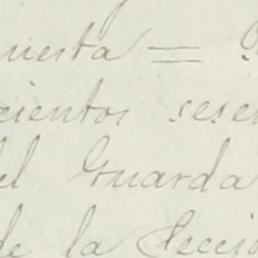 uesta =
cientos sese
el Guarda
de la Secció